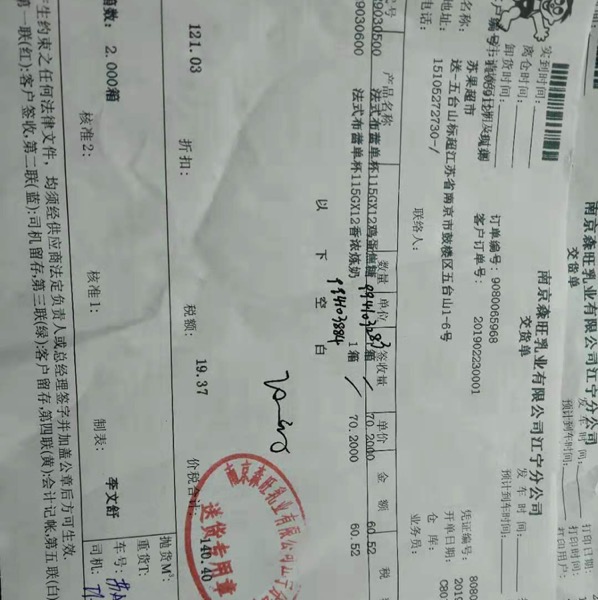 南京森旺乳业有限公司江宁分公司
交货单
打印日
打印时间:
打印用户:
发车时间:
预计到车时间:
南京森旺乳业有限公司江宁分公司
交货单
发车时间:
预计到车时间:
实到时间:
离仓时间:
卸货时间:
订单编号: 9080065968
客户订单号: 201902230001
凭证编号: 8080
开单日期: 2019
仓库: C80
业务员:
客户编号:
名称: 苏果超市
地址: 送-五台山标超江苏省南京市鼓楼区五台山1-6号
电话: 15105272730-/
联络人:
产品名称 数量 单位 签收量 单价 金额 税
9030500 法式布蕾单杯115GX12鸡蛋焦糖 箱 70.2000 60.52
99030600 法式布蕾单杯115GX12香浓炼奶 1箱 70.2000 60.52
以下空白
121.03 折扣: 税额: 19.37 价税合计: 140.40
南京森旺乳业有限公司江宁
送货专用章
箱数: 2.000箱
抛货M³:
重货T:
核准2: 核准1: 制表: 李文舒 车号:
司机:
生约束之任何法律文件,均须经供应商法定负责人或总经理签字并加盖公章后方可生效。
第一联(红):客户签收,第二联(蓝):司机留存,第三联(绿):客户留存,第四联(黄):会计记帐,第五联(白)